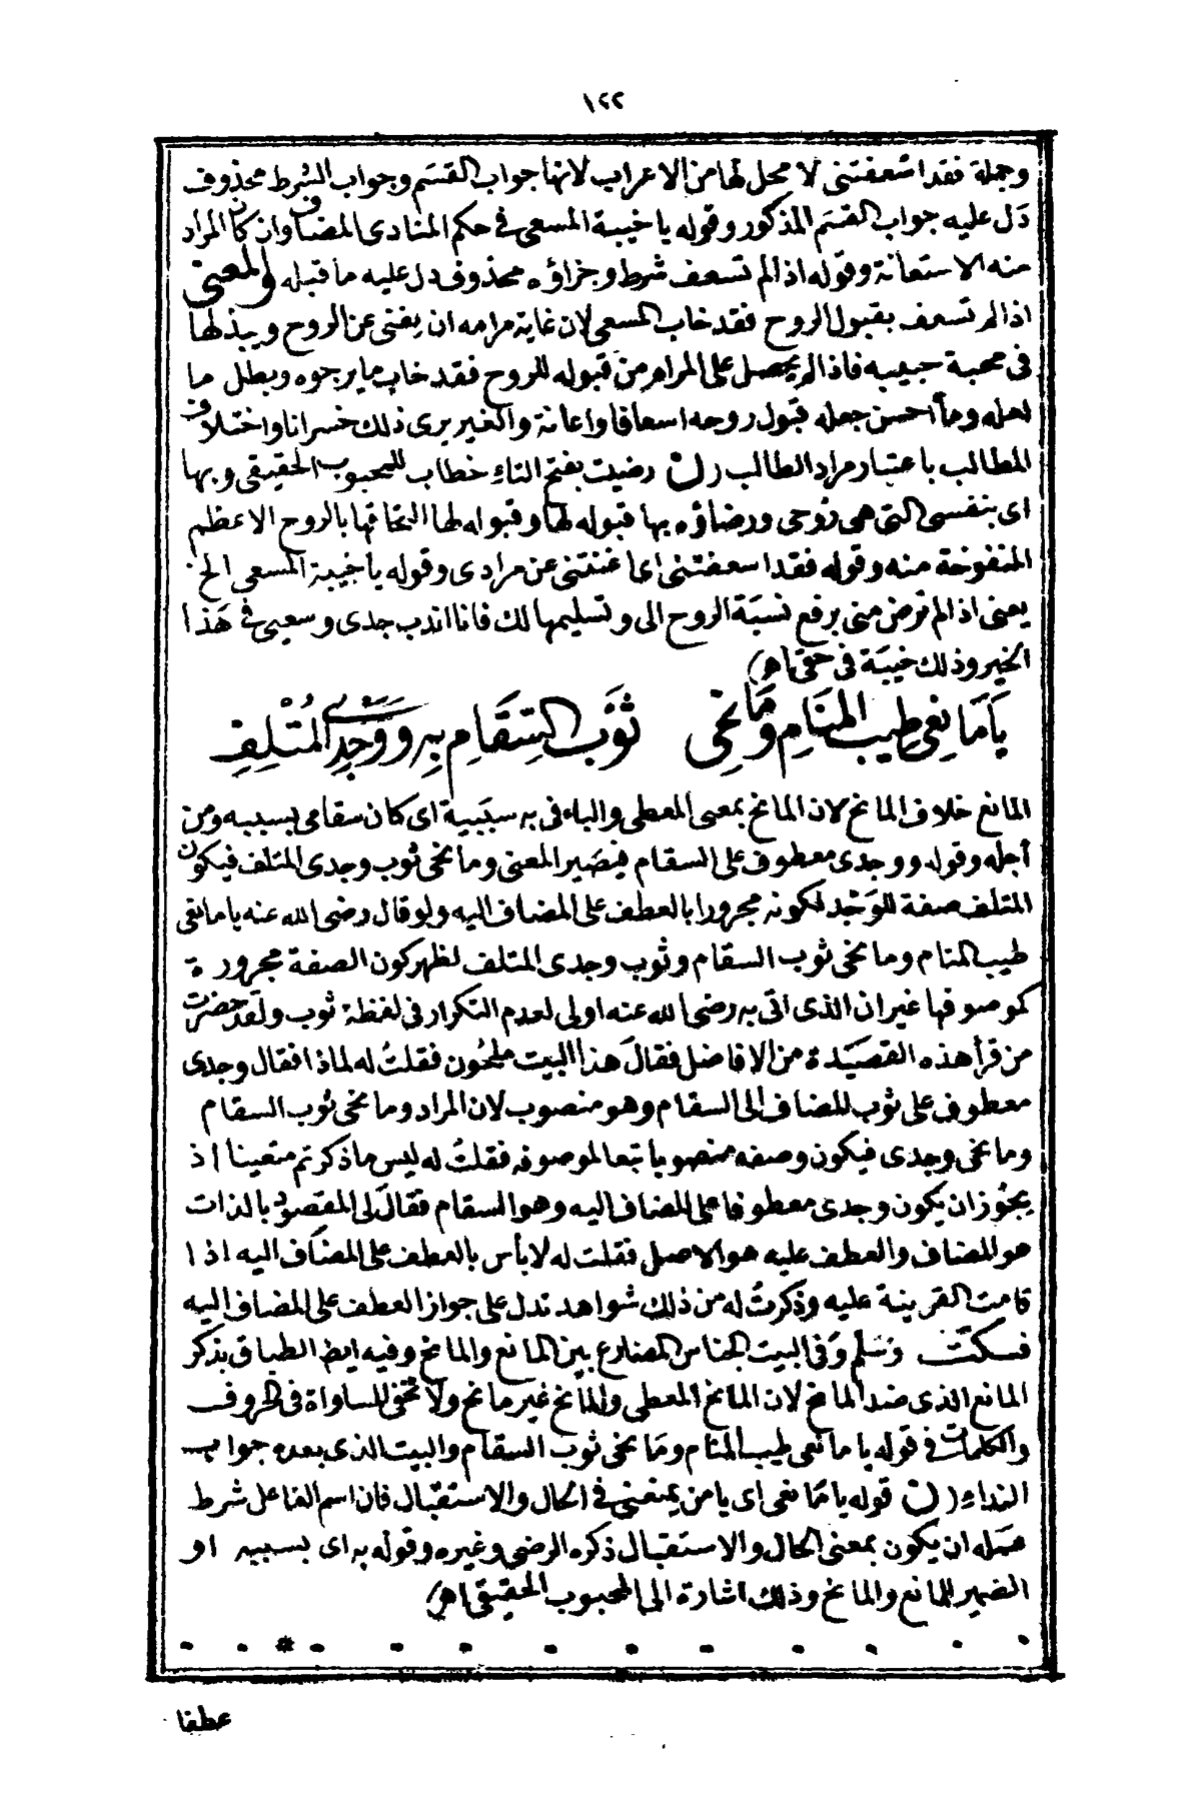 ١٢٢
وجملة فقد اسعفتنى لا محل لها من الاعراب لانها جواب القسم وجواب الشرط محذوف
دل عليه جواب القسم المذكور وقوله يا خيبة المسعى فى حكم المنادى المضاف وان كان المراد
منه الاستعانة وقوله اذا لم تسعف شرط وجزاؤه محذوف دل عليه ما قبله والمعنى
اذا لم تسعف بقبول الروح فقد خاب المسعى لان غاية مرامه ان يفنى عن الروح ويبذلها
فى محبة حبيبه فاذا لم يحصل على المرام من قبوله للروح فقد خاب ما يرجوه وبطل ما
لعله وما أحسن جعله قبول روحه اسعافا واعانة والغير يرى ذلك خسرانا واختلاف
المطالب باعتبار مراد الطالب (ن) رضيت بفتح التاء خطاب للمحبوب الحقيقى وبها
اى بنفسى التى هى روحى ورضاؤه بها قبوله لها وقبوله لها التحاقها بالروح الاعظم
المنفوخة منه وقوله فقد اسعفتنى اى اغنتنى عن مرادى وقوله يا خيبة المسعى الخ
يعنى اذا لم ترض منى برفع نسبة الروح الى وتسليمها لك فانا اندب جدى وسعيى فى هذا
الخير وذلك خيبة فى حقى اهـ)
يَا مَانِعِى طِيبَ المَنَامِ وَمَانِحِى ثَوْبَ السِّقَامِ بِهِ وَوَجْدِى المُتْلِفِ
المانع خلاف المانح لان المانح بمعنى المعطى والباء فى به سببية اى كان سقامى بسببه ومن
أجله وقوله ووجدى معطوف على السقام فيصير المعنى ومانحى ثوب وجدى المتلف فيكون
المتلف صفة للوجد لكونه مجرورا بالعطف على المضاف اليه ولو قال رضى الله عنه يا مانعى
طيب المنام ومانحى ثوب السقام وثوب وجدى المتلف لظهر كون الصفة مجرورة
كموصوفها غير ان الذى اتى به رضى الله عنه اولى لعدم التكرار فى لفظة ثوب ولقد حضرت
من قرأ هذه القصيدة من الافاضل فقال هذا البيت ملحون فقلتُ له لماذا فقال وجدى
معطوف على ثوب المضاف الى السقام وهو منصوب لان المراد ومانحى ثوب السقام
ومانحى وجدى فيكون وصفه منصوبا تبعا لموصوفه فقلتُ له ليس ما ذكرتم متعينا اذ
يجوز ان يكون وجدى معطوفا على المضاف اليه وهو السقام فقال لى المقصود بالذات
هو المضاف والعطف عليه هو الاصل فقلت له لا بأس بالعطف على المضاف اليه اذا
قامت القرينة عليه وذكرتُ له من ذلك شواهد تدل على جواز العطف على المضاف اليه
فسكت وسلم وفى البيت الجناس المضارع بين المانع والمانح وفيه ايضا الطباق بذكر
المانع الذى ضد المانح لان المانح المعطى والمانع غير مانح ولا تخفى المساواة فى الحروف
والكلمات فى قوله يا مانعى طيب المنام ومانحى ثوب السقام والبيت الذى بعده جواب
النداء (ن) قوله يا مانعى اى يا من يمنعنى فى الحال والاستقبال فان اسم الفاعل شرط
عمله ان يكون بمعنى الحال والاستقبال ذكره الرضى وغيره وقوله به اى بسببه او
الضمير للمانع والمانح وذلك اشارة الى المحبوب الحقيقى اهـ)
عطفا